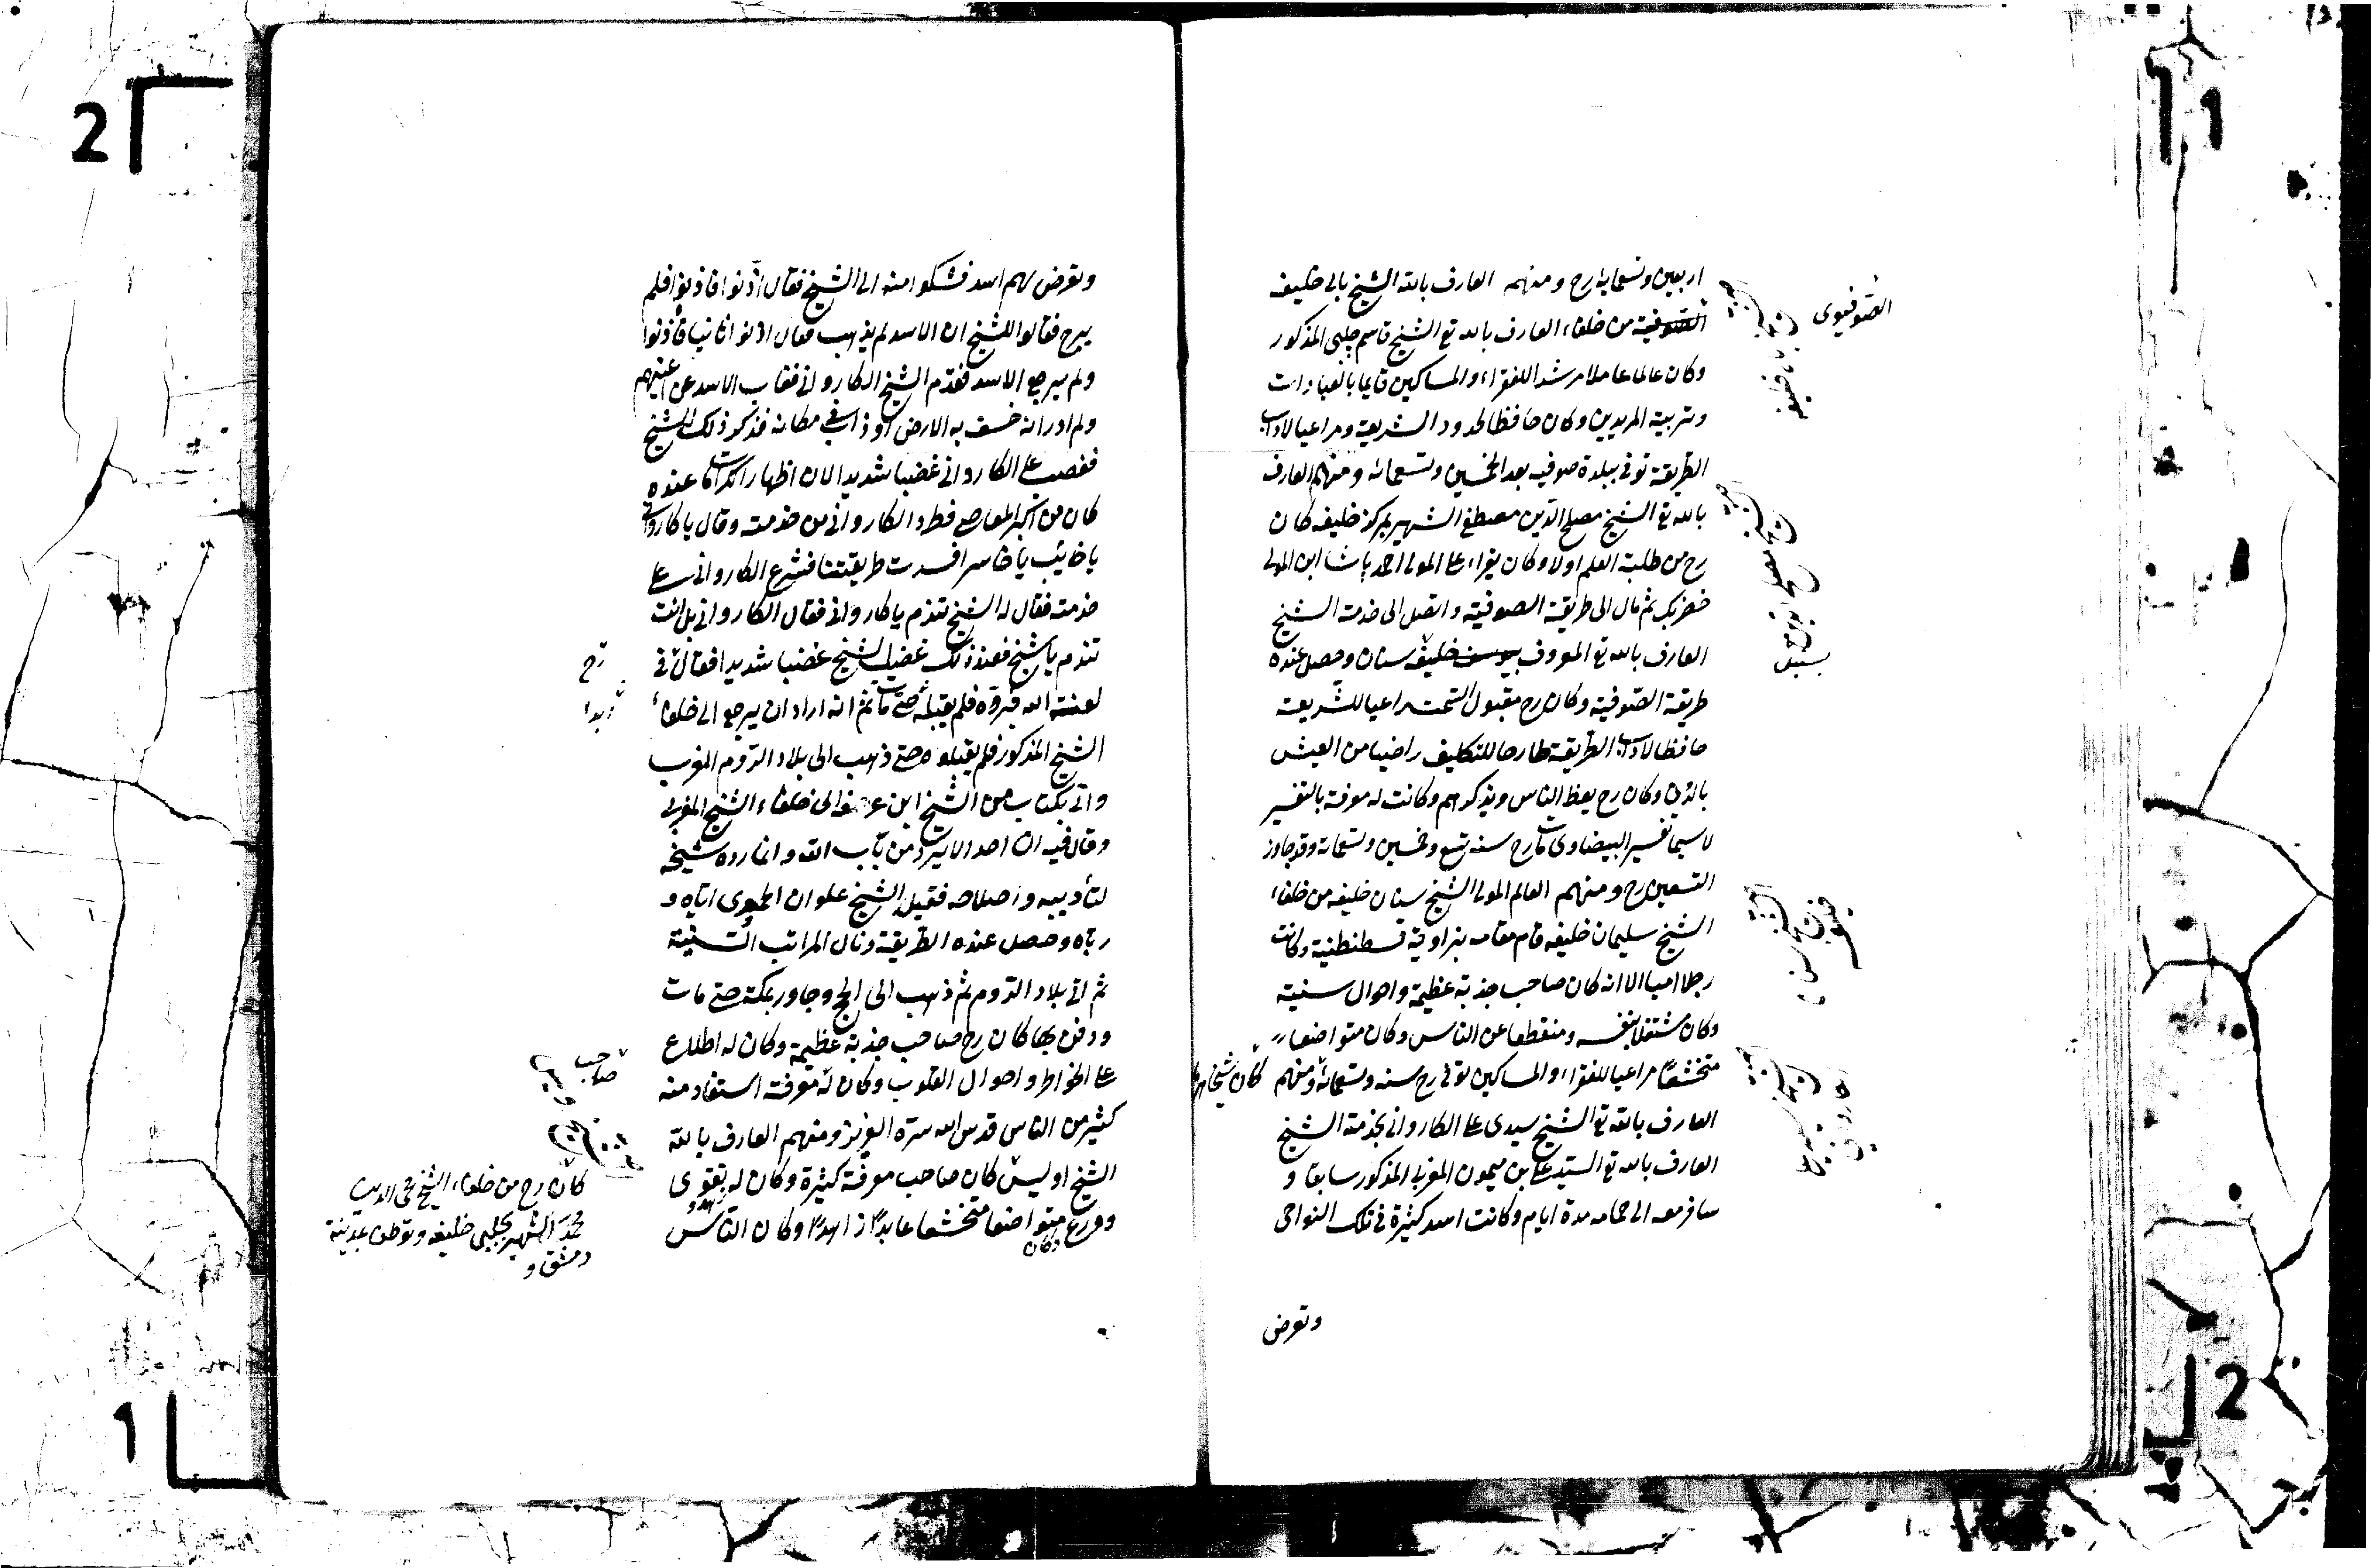 اربعين وتسعمايه رح ومنهم العارف بالله الشيخ بالى خليفه
الصوفية من خلفاء العارف بالله تع الشيخ قاسم چلبى المذكور
الصوفيوى
الشيخ بالى خليفه
وكان عالما عاملا مرشدا للفقراء والمساكين قايما بالعبادات
وتربية المريدين وكان حافظا لحدود الشريعة ومراعيا لاداب
الطريقة توفى ببلدة صوفيه بعد الخمسين وتسعمائه ومنهم العارف
بالله تع الشيخ مصلح الدين مصطفى الشهير بمركز خليفه كان
الشيخ مصلح الدين
رح من طلبة العلم اولا وكان يقراء على المولى احمد باشا ابن المولى
خضربك ثم مال الى طريقة الصوفية واتصل الى خدمة الشيخ
العارف بالله تع المعروف بيوسف خليفه سنان وحصل عنده
سنبل
طريقة الصوفية وكان رح مقبول السمت مراعيا للشريعت
حافظا لاداب الطريقة طارحا للتكليف راضيا من العيش
بالدون وكان رح يعظ الناس ويذكرهم وكانت له معرفة بالتفسير
لا سيما تفسير البيضاوى مات رح سنه تسع وخمسين وتسعمائة وقد جاوز
التسعين رح ومنهم العالم المولى الشيخ سنان خليفه من خلفاء
الشيخ سنان خليفه
الشيخ سليمان خليفه قام مقامه بزاوية قسطنطنية وكانت
رجلا اميا الا انه كان صاحب جذبة عظيمة واحوال سنية
وكان مشتغلا بنفسه ومنقطعا عن الناس وكان متواضعا
متخشعا مراعيا للفقراء والمساكين توفى رح سنه وتسعمائة ومنهم
العارف بالله تع الشيخ سيدى على الكاروانى بخدمة الشيخ
الشيخ سيدى على
الكاروانى
العارف بالله تع السيد على بن ميمون المغربى المذكور سابقا و
سافر معه الى حمامه مدة ايام وكانت اسد كثيرة فى تلك النواحى
وتعرض
وتعرض لهم اسد فشكوا منه الى الشيخ فقال اذنوا فاذنوا فلم
يبرح فقالوا للشيخ ان الاسد لم يذهب فقال اذنوا ثانيا فاذنوا
ولم يرجع الاسد فقدم الشيخ الكاروانى فغاب الاسد عن اعينهم
ولم ادر انه خسف به الارض او ذاب فى مكانه فذكر ذلك للشيخ
فغضب على الكاروانى غضبا شديدا لان اظهار الكرامات عنده
كان من اكبر المعاصى فطرد الكاروانى من خدمته وقال يا كاروانى
يا خايب يا خاسر افسدت طريقتنا فشرع الكاروانى على
خدمته فقال له الشيخ تندم يا كاروانى فقال الكاروانى بل انت
تندم يا شيخ فعند ذلك غضب الشيخ غضبا شديدا فقال فى
رح
لعنته الله فرده فلم يقبله حتى مات ثم انه اراد ان يرجع الى خلفاء
ابدا
الشيخ المذكور فلم يقبلوه حتى ذهب الى بلاد الروم المغرب
واتى بكتاب من الشيخ ابن عرفه الى خلفاء الشيخ المغربى
وقال فيه ان احدا لا يرد من باب الله وانما رده شيخه
لتأديبه واصلاحه فقبله الشيخ علوان الحموى اياه و
رباه وحصل عنده الطريقة ونال المراتب السنية
ثم اتى بلاد الروم ثم ذهب الى الحج وجاور بمكة حتى مات
ودفن بها كان رح صاحب جذبة عظيمة وكان له اطلاع
على الخواطر واحوال القلوب وكان له معرفة استفاد منه
صاحب
كثير من الناس قدس الله سره العزيز ومنهم العارف بالله
الشيخ اويس
الشيخ اويس كان صاحب معرفة كثيرة وكان له تقوى
وزهد
وورع متواضعا متخشعا عابدا زاهدا وكان الناس
وكان
كان رح من خلفاء الشيخ محى الدين
محمد الشهير بچلبى خليفه وتوطن بمدينة
دمشق و
2
1
1
2